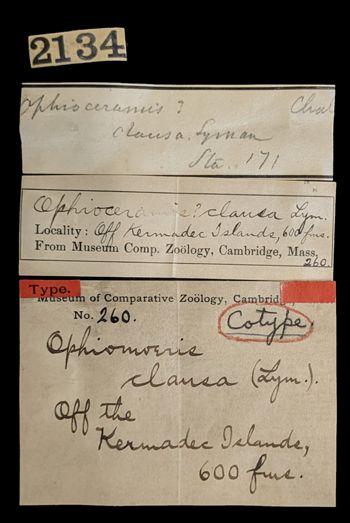 2134
Ophioceramis? Chal
clausa. Lyman
Sta. 171
Ophioceramis? clausa Lym.
Locality: Off Kermadec Islands, 600 fms.
From Museum Comp. Zoölogy, Cambridge, Mass.
260.
Type.
Museum of Comparative Zoölogy, Cambrid
No. 260.
Cotype.
Ophiomoeris
clausa (Lym.).
Off the
Kermadec Islands,
600 fms.